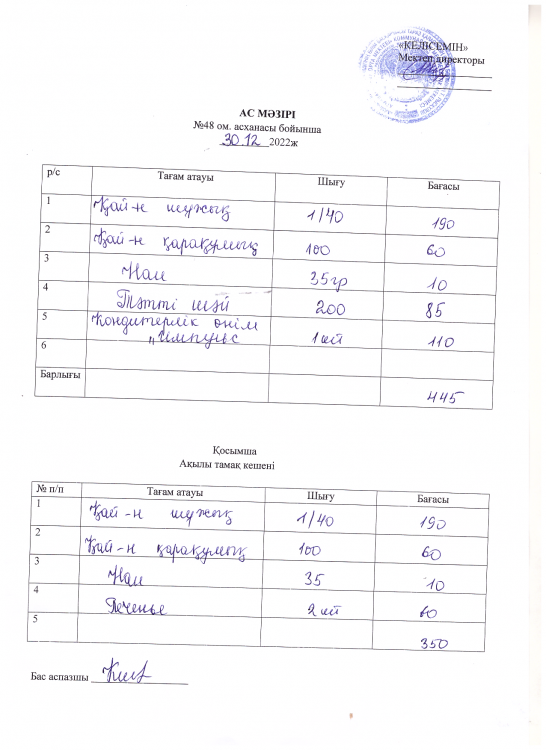 «КЕЛІСЕМІН»
Мектеп директоры
АС МӘЗІРІ
№48 ом. асханасы бойынша
30.12 2022ж
р/с Тағам атауы Шығу Бағасы
1 Қай-н шұжық 1/40 190
2 Қай-н қарақұмық 100 60
3 Нан 35гр 10
4 Тәтті шәй 200 85
5 Кондитерлік өнім
"Импульс 1 шт 110
6
Барлығы 445
Қосымша
Ақылы тамақ кешені
№ п/п Тағам атауы Шығу Бағасы
1 Қай-н шұжық 1/40 190
2 Қай-н қарақұмық 100 60
3 Нан 35 10
4 Печенье 2 шт 60
5 350
Бас аспазшы